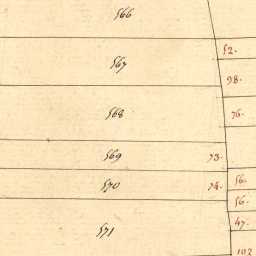 566
52.
567
98.
568
76.
569 73.
570 74. 56.
56.
571 47.
102